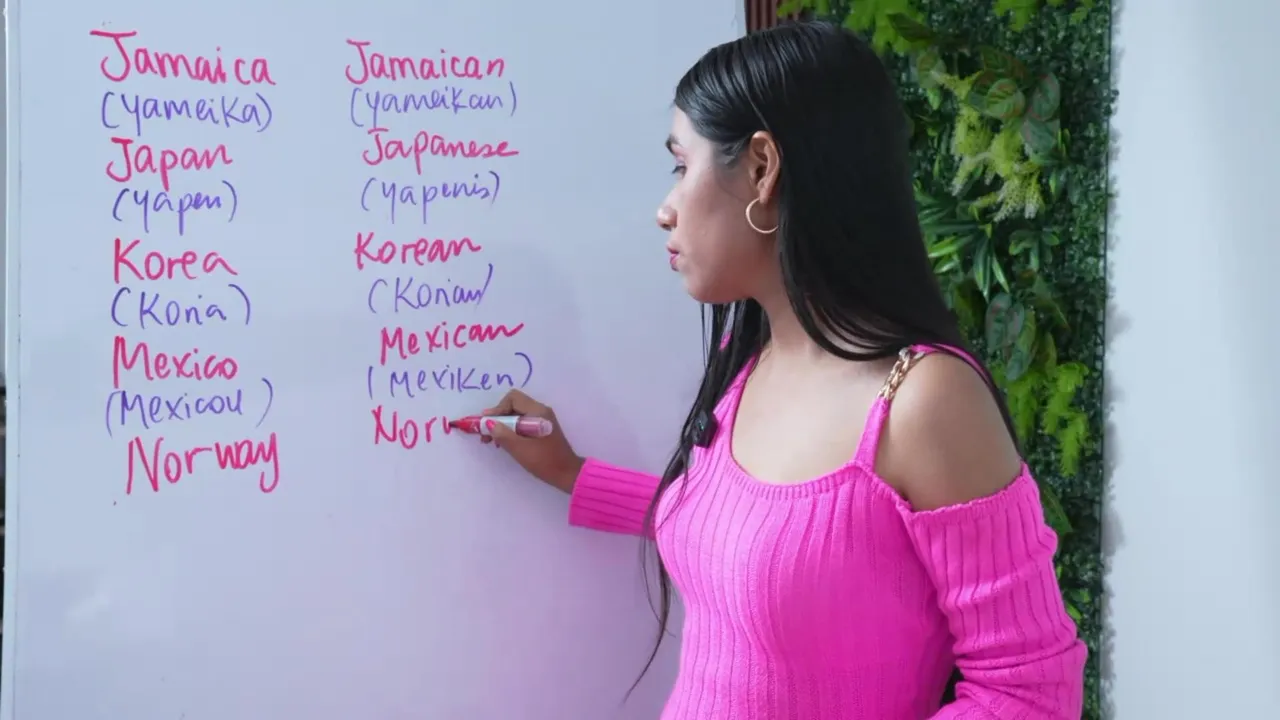 Jamaica Jamaican
(Yameika) (Yameikan)
Japan Japanese
(Yapen) (Yapenis)
Korea Korean
(Koria) (Korian)
Mexico Mexican
(Mexicou) (Mexiken)
Norway Nor